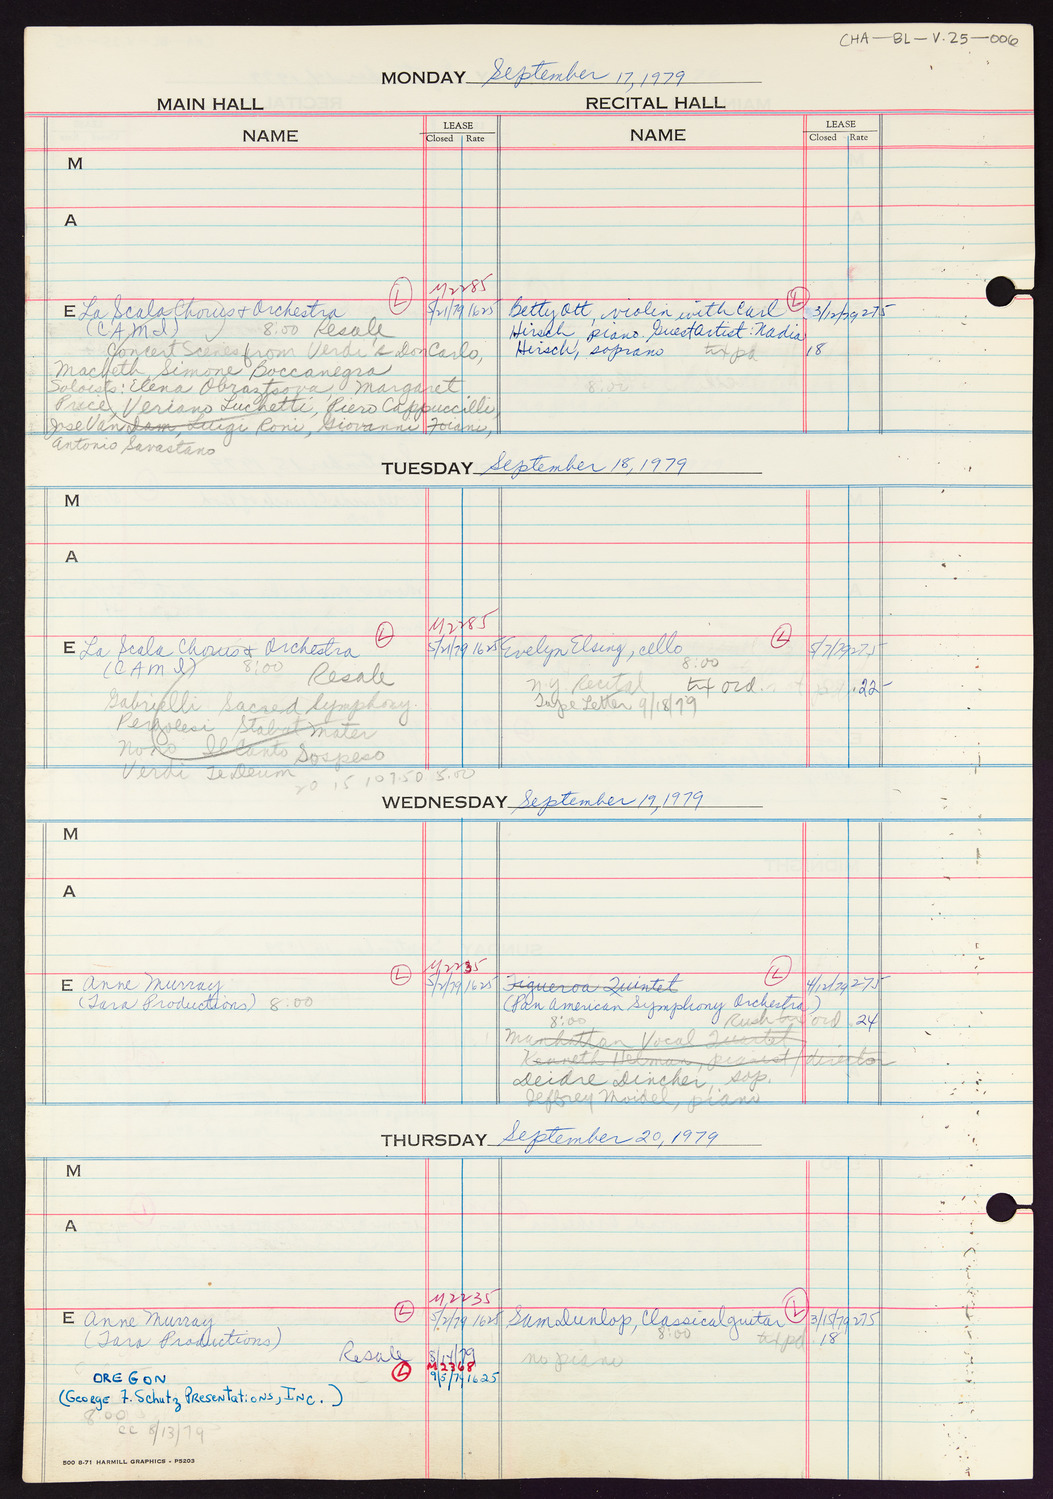 CHA—BL—V.25—006
MONDAY September 17, 1979
MAIN HALL RECITAL HALL
NAME LEASE Closed Rate NAME LEASE Closed Rate
M
A
M2285
E La Scala Chorus & Orchestra L 5/21/79 1625
(CAMI) 8:00 Resale
Concert Scenes from Verdi's Don Carlo,
Macbeth, Simone Boccanegra
Soloists: Elena Obraztsova, Margaret
Price, Veriano Luchetti, Piero Cappuccilli,
Jose Van Dam, Luigi Roni, Giovanni Foiani,
Antonio Savastano
Betty Ott, violin with Carl L 3/12/79 275
Hirsch, piano. Guest Artist: Nadia
Hirsch, soprano txpd 18
8:00
TUESDAY September 18, 1979
M
A
M2285
E La Scala Chorus & Orchestra L 5/21/79 1625
(CAMI) 8:00 Resale
Gabrielli Sacred Symphony
Pergolesi Stabat Mater
Nono Il Canto Sospeso
Verdi Te Deum
20 15 10 7.50 5.00
Evelyn Elsing, cello L 5/7/79 275
8:00
NY Recital txt ord. .22
Tape Letter 9/18/79
WEDNESDAY September 19, 1979
M
A
M2235
E Anne Murray L 5/2/79 1625
(Tara Productions) 8:00
Figueroa Quintet L 4/12/79 275
(Pan American Symphony Orchestra)
8:00 Rush ord. 24
Manhattan Vocal Quartet
Kenneth Helman, pianist/director
Deidre Dincher, sop.
Jeffrey Moidel, piano
THURSDAY September 20, 1979
M
A
M2235
E Anne Murray L 5/2/79 1625
(Tara Productions)
Resale 5/14/79
M2368
OREGON L 9/5/79 1625
(George F. Schutz Presentations, Inc.)
8:00
cc 8/13/79
Sam Dunlop, Classical guitar L 3/15/79 275
8:00 txpd. 18
no piano
500 8-71 HARMILL GRAPHICS - P5203